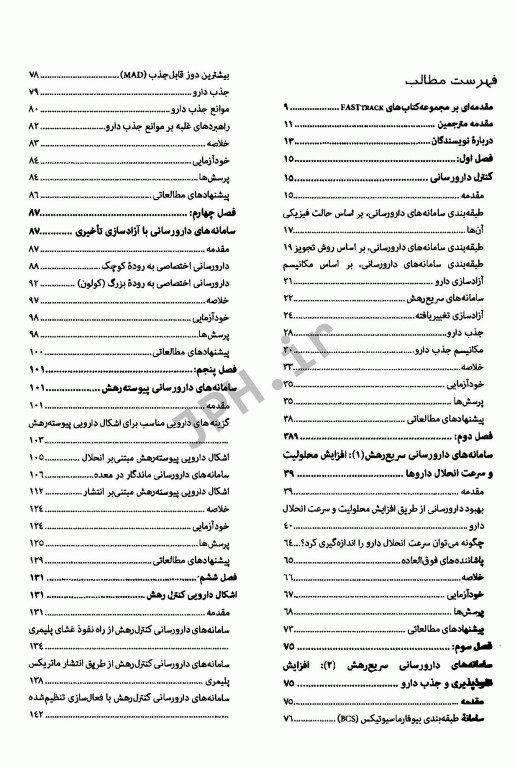 فهرست مطالب
مقدمه‌ای بر مجموعه‌کتاب‌های FASTTRACK ۹
مقدمه مترجمین ۱۱
دربارهٔ نویسندگان ۱۳
فصل اول: ۱۵
کنترل دارورسانی ۱۵
مقدمه ۱۵
طبقه‌بندی سامانه‌های دارورسانی، بر اساس حالت فیزیکی
آن‌ها ۱۷
طبقه‌بندی سامانه‌های دارورسانی، بر اساس روش تجویز ۱۹
طبقه‌بندی سامانه‌های دارورسانی، بر اساس مکانیسم
آزادسازی دارو ۲۱
سامانه‌های سریع‌رهش ۲۲
آزادسازی تغییریافته ۲۴
جذب دارو ۲۸
مکانیسم جذب دارو ۳۰
خلاصه ۳۳
خودآزمایی ۳۵
پرسش‌ها ۳۵
پیشنهادهای مطالعاتی ۳۸
فصل دوم: ۳۸۹
سامانه‌های دارورسانی سریع‌رهش (۱): افزایش محلولیت
و سرعت انحلال داروها ۳۹
مقدمه ۳۹
بهبود دارورسانی از طریق افزایش محلولیت و سرعت انحلال
دارو ۴۰
چگونه می‌توان سرعت انحلال دارو را اندازه‌گیری کرد؟ ۶۴
پاشاننده‌های فوق‌العاده ۶۵
خلاصه ۶۶
خودآزمایی ۶۷
پرسش‌ها ۶۸
پیشنهادهای مطالعاتی ۷۳
فصل سوم: ۷۵
سامانه‌های دارورسانی سریع‌رهش (۲): افزایش
نفوذپذیری و جذب دارو ۷۵
مقدمه ۷۵
سامانهٔ طبقه‌بندی بیوفارماسیوتیکس (BCS) ۷۶
بیشترین دوز قابل‌جذب (MAD) ۷۸
جذب دارو ۷۹
موانع جذب دارو ۸۰
راهبردهای غلبه بر موانع جذب دارو ۸۲
خلاصه ۸۳
خودآزمایی ۸۴
پرسش‌ها ۸۴
پیشنهادهای مطالعاتی ۸۶
فصل چهارم: ۸۷
سامانه‌های دارورسانی با آزادسازی تأخیری ۸۷
مقدمه ۸۷
دارورسانی اختصاصی به رودهٔ کوچک ۸۸
دارورسانی اختصاصی به رودهٔ بزرگ (کولون) ۹۲
خلاصه ۹۷
خودآزمایی ۹۸
پرسش‌ها ۹۸
پیشنهادهای مطالعاتی ۱۰۰
فصل پنجم: ۱۰۱
سامانه‌های دارورسانی پیوسته‌رهش ۱۰۱
مقدمه ۱۰۱
گزینه های دارویی مناسب برای اشکال دارویی پیوسته‌رهش
۱۰۳
اشکال دارویی پیوسته‌رهش مبتنی‌بر انحلال ۱۰۵
سامانه‌های دارورسانی ماندگار در معده ۱۰۶
اشکال دارویی پیوسته‌رهش مبتنی‌بر انتشار ۱۱۲
خلاصه ۱۲۴
خودآزمایی ۱۲۴
پرسش‌ها ۱۲۵
پیشنهادهای مطالعاتی ۱۲۹
فصل ششم ۱۳۱
اشکال دارویی کنترل رهش ۱۳۱
مقدمه ۱۳۱
سامانه‌های دارورسانی کنترل‌رهش از راه نفوذ غشای پلیمری
۱۳۴
سامانه‌های دارورسانی کنترل‌رهش از طریق انتشار ماتریکس
پلیمری ۱۳۸
سامانه‌های دارورسانی کنترل‌رهش با فعال‌سازی تنظیم‌شده
۱۴۲
JPH.ir